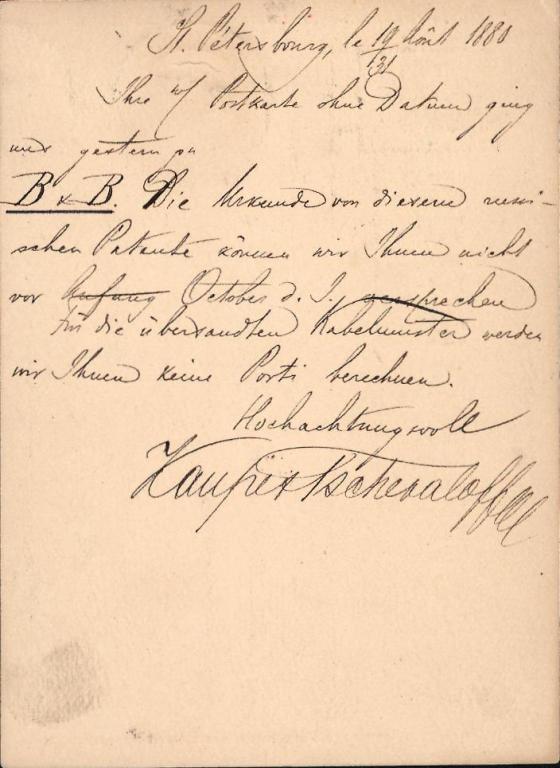 St. Pétersbourg, le 19/31 Août 1880
Ihre w/ Postkarte ohne Datum ging
uns gestern zu
B & B. Die Urkunde von diesem russi-
schen Patente können wir Ihnen nicht
vor Anfang October d. J. versprechen
Für die übersandten Kabelmuster werden
wir Ihnen keine Porti berechnen.
Hochachtungsvoll
Kaupé & Tschekaloff